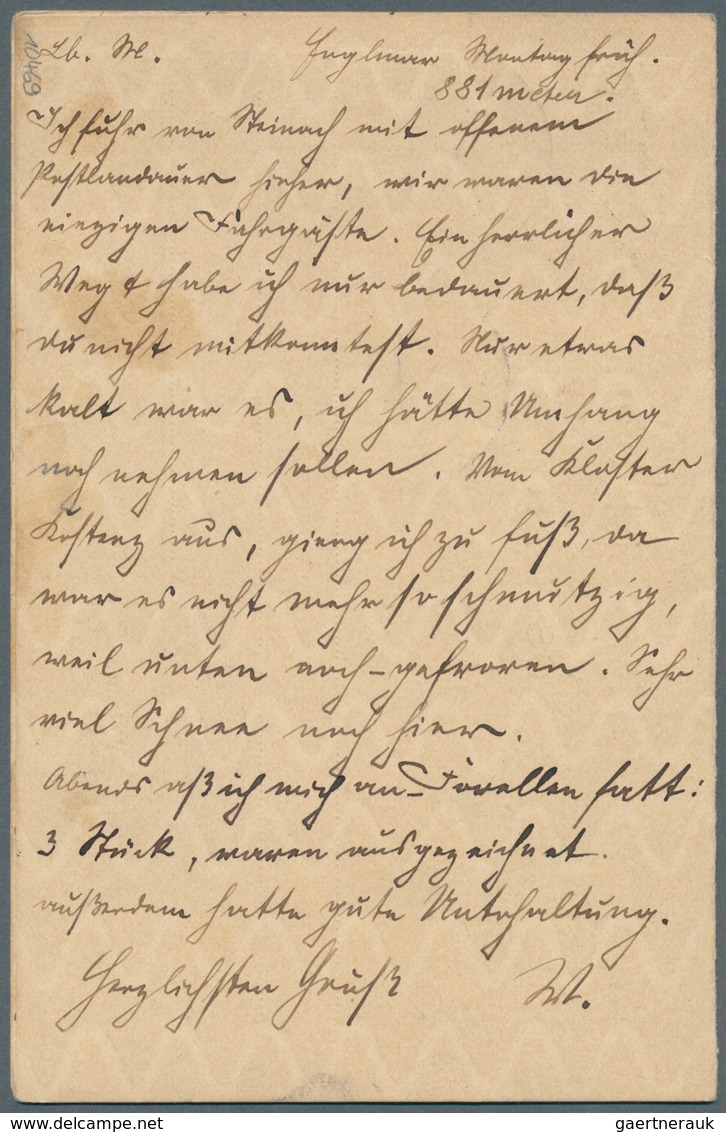 10469
Lb. M. Englmar Montag früh.
881 meter.
Ich fuhr von Steinach mit offenem
Postlandauer hieher, wir waren die
einzigen Fahrgäste. Ein herrlicher
Weg & habe ich nur bedauert, daß
du nicht mitkonntest. Nur etwas
kalt war es, ich hätte Umhang
noch nehmen sollen. Vom Kloster
Kostenz aus, gieng ich zu fuß, da
war es nicht mehr so schmutzig,
weil unten noch gefroren. Sehr
viel Schnee noch hier.
Abends aß ich mich an Forellen satt:
3 Stück, waren ausgezeichnet.
außerdem hatte gute Untehaltung.
Herzlichsten Gruß W.
gaertnerauk